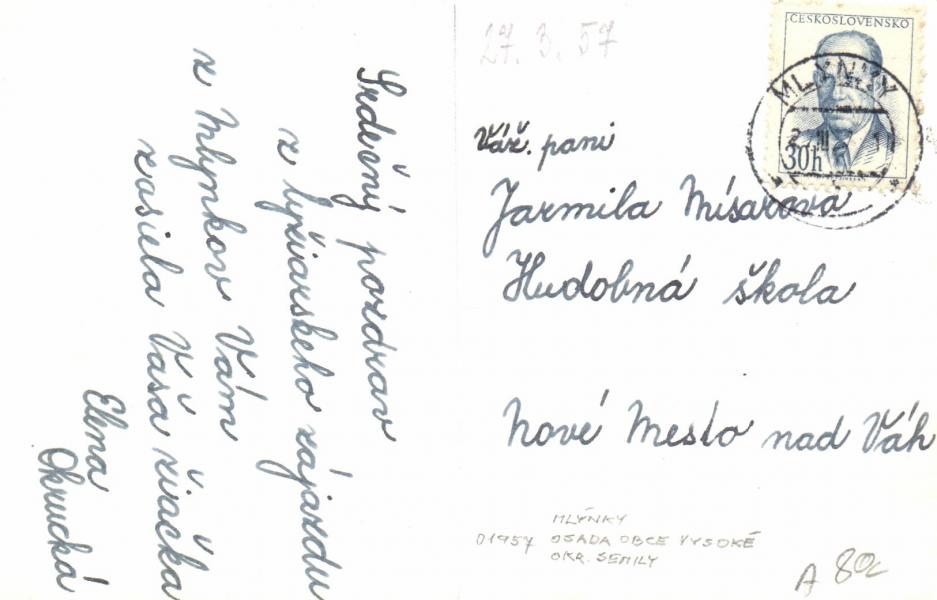 Srdečný pozdrav
z lyžiarskeho zájazdu
z Mlynkov Vám
zasiela Vaša žiačka
Elena
Okrucká
27. 3. 57
ČESKOSLOVENSKO
30h
MLYNKY
Váž. pani
Jarmila Mísarová
Hudobná škola
Nové Mesto nad Váh
MLÝNKY
01957 OSADA OBCE VYSOKÉ
OKR. SEMILY
A 80c